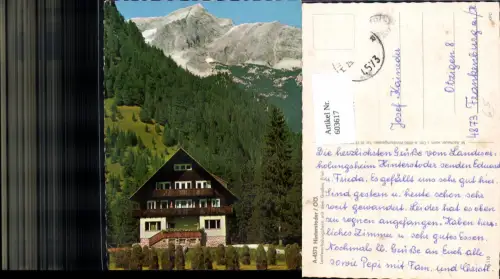 Artikel Nr.
603617
4573
Josef Kaineder
Obzigen 8
4873 Frankenburg a/H
A-4573 Hinterstoder / OÖ.
Die herzlichsten Grüße vom Landeser-
holungsheim Hinterstoder senden Eduard
u. Frieda. Es gefällt uns sehr gut hier.
Sind gestern u. heute schon sehr
weit gewandert. Leider hat es oben
zu regnen angefangen. Haben herr-
liches Zimmer u. sehr gutes Essen.
Nochmals lb. Grüße an Euch alle
sowie Pepi mit Fam. und